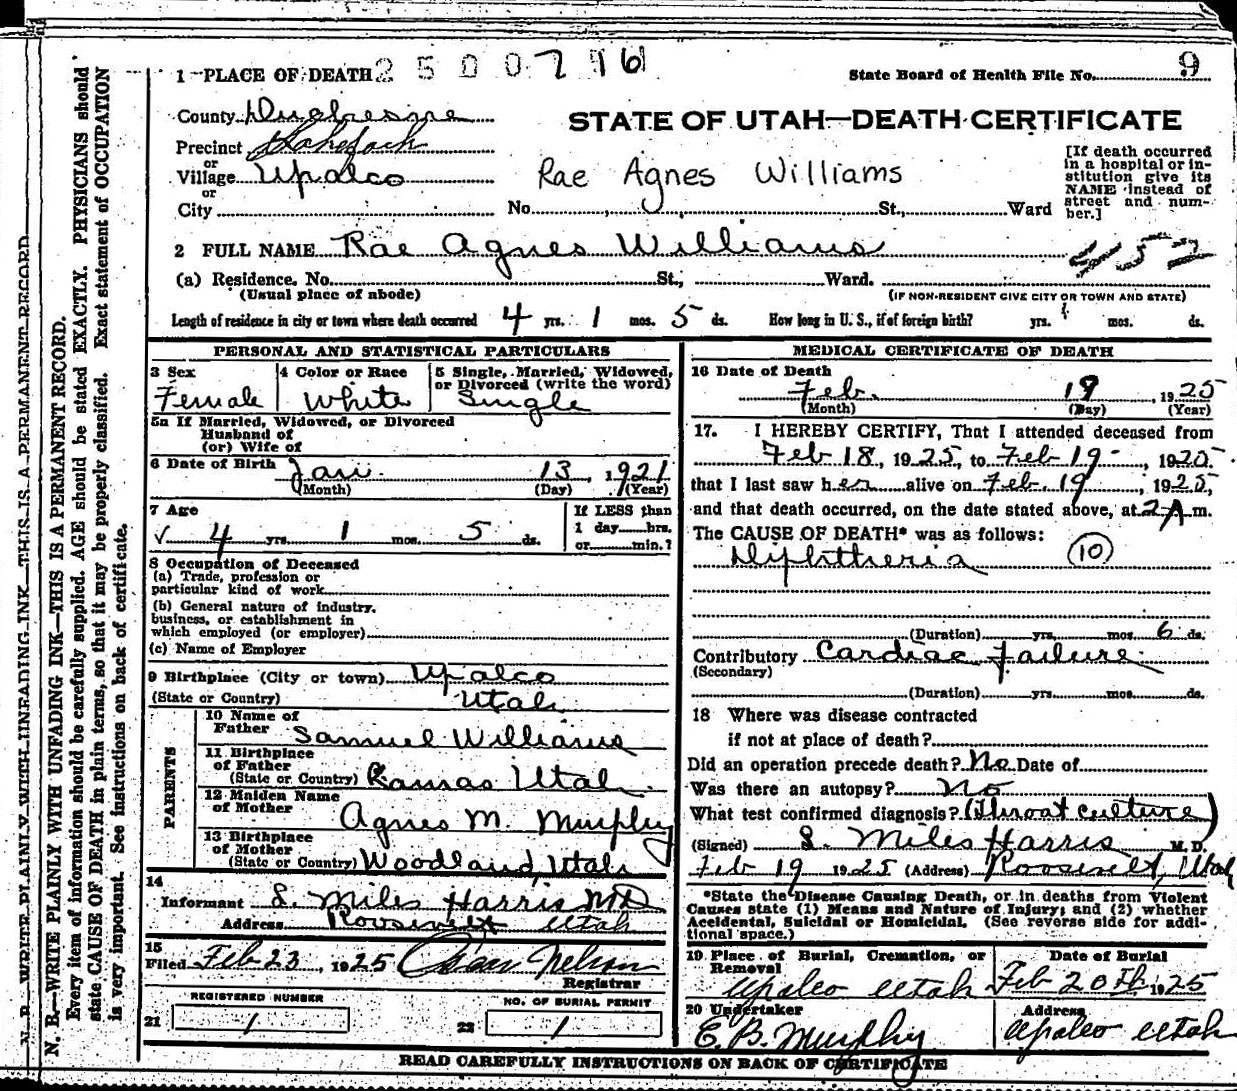 1 PLACE OF DEATH 2 5 0 0 7 1 6
State Board of Health File No. 9
County Duchesne
STATE OF UTAH—DEATH CERTIFICATE
Precinct
or
Village Upalco
or
City
Rae Agnes Williams
No. St., Ward
[If death occurred
in a hospital or in-
stitution give its
NAME instead of
street and num-
ber.]
2 FULL NAME Rae Agnes Williams
452
(a) Residence. No. St., Ward.
(Usual place of abode)
(IF NON-RESIDENT GIVE CITY OR TOWN AND STATE)
Length of residence in city or town where death occurred 4 yrs. 1 mos. 5 ds. How long in U. S., if of foreign birth? yrs. mos. ds.
PERSONAL AND STATISTICAL PARTICULARS
3 Sex
Female
4 Color or Race
White
5 Single, Married, Widowed,
or Divorced (write the word)
Single
5a If Married, Widowed, or Divorced
Husband of
(or) Wife of
6 Date of Birth Jan. 13, 1921
(Month) (Day) (Year)
7 Age
√ 4 yrs. 1 mos. 5 ds.
If LESS than
1 day hrs.
or min.?
8 Occupation of Deceased
(a) Trade, profession or
particular kind of work
(b) General nature of industry,
business, or establishment in
which employed (or employer)
(c) Name of Employer
9 Birthplace (City or town) Upalco
(State or Country) Utah
PARENTS
10 Name of
Father Samuel Williams
11 Birthplace
of Father
(State or Country) Kamas Utah
12 Maiden Name
of Mother Agnes M. Murphy
13 Birthplace
of Mother
(State or Country) Woodland, Utah
14
Informant L. Miles Harris MD
Address Roosevelt Utah
15
Filed Feb 23, 1925 Oscar Nelson
Registrar
REGISTERED NUMBER
21 1
NO. OF BURIAL PERMIT
22 1
MEDICAL CERTIFICATE OF DEATH
16 Date of Death
Feb. 19 1925
(Month) (Day) (Year)
17. I HEREBY CERTIFY, That I attended deceased from
Feb 18, 1925, to Feb 19, 1925
that I last saw her alive on Feb. 19, 1925,
and that death occurred, on the date stated above, at 2 A m.
The CAUSE OF DEATH* was as follows:
Diphtheria (10)
(Duration) yrs. mos. 6 ds.
Contributory Cardiac Failure
(Secondary)
(Duration) yrs. mos. ds.
18 Where was disease contracted
if not at place of death?
Did an operation precede death? No Date of
Was there an autopsy? No
What test confirmed diagnosis? (Throat culture)
(Signed) L. Miles Harris M. D.
Feb 19 1925 (Address) Roosevelt, Utah
*State the Disease Causing Death, or in deaths from Violent
Causes state (1) Means and Nature of Injury; and (2) whether
Accidental, Suicidal or Homicidal. (See reverse side for addi-
tional space.)
19 Place of Burial, Cremation, or
Removal
Upalco Utah
Date of Burial
Feb 20th 1925
20 Undertaker
E. B. Murphy
Address
Upalco Utah
READ CAREFULLY INSTRUCTIONS ON BACK OF CERTIFICATE
N. B. WRITE PLAINLY WITH UNFADING INK—THIS IS A PERMANENT RECORD
N. B.—WRITE PLAINLY WITH UNFADING INK—THIS IS A PERMANENT RECORD.
Every item of information should be carefully supplied. AGE should be stated EXACTLY. PHYSICIANS should
state CAUSE OF DEATH in plain terms, so that it may be properly classified. Exact statement of OCCUPATION
is very important. See instructions on back of certificate.